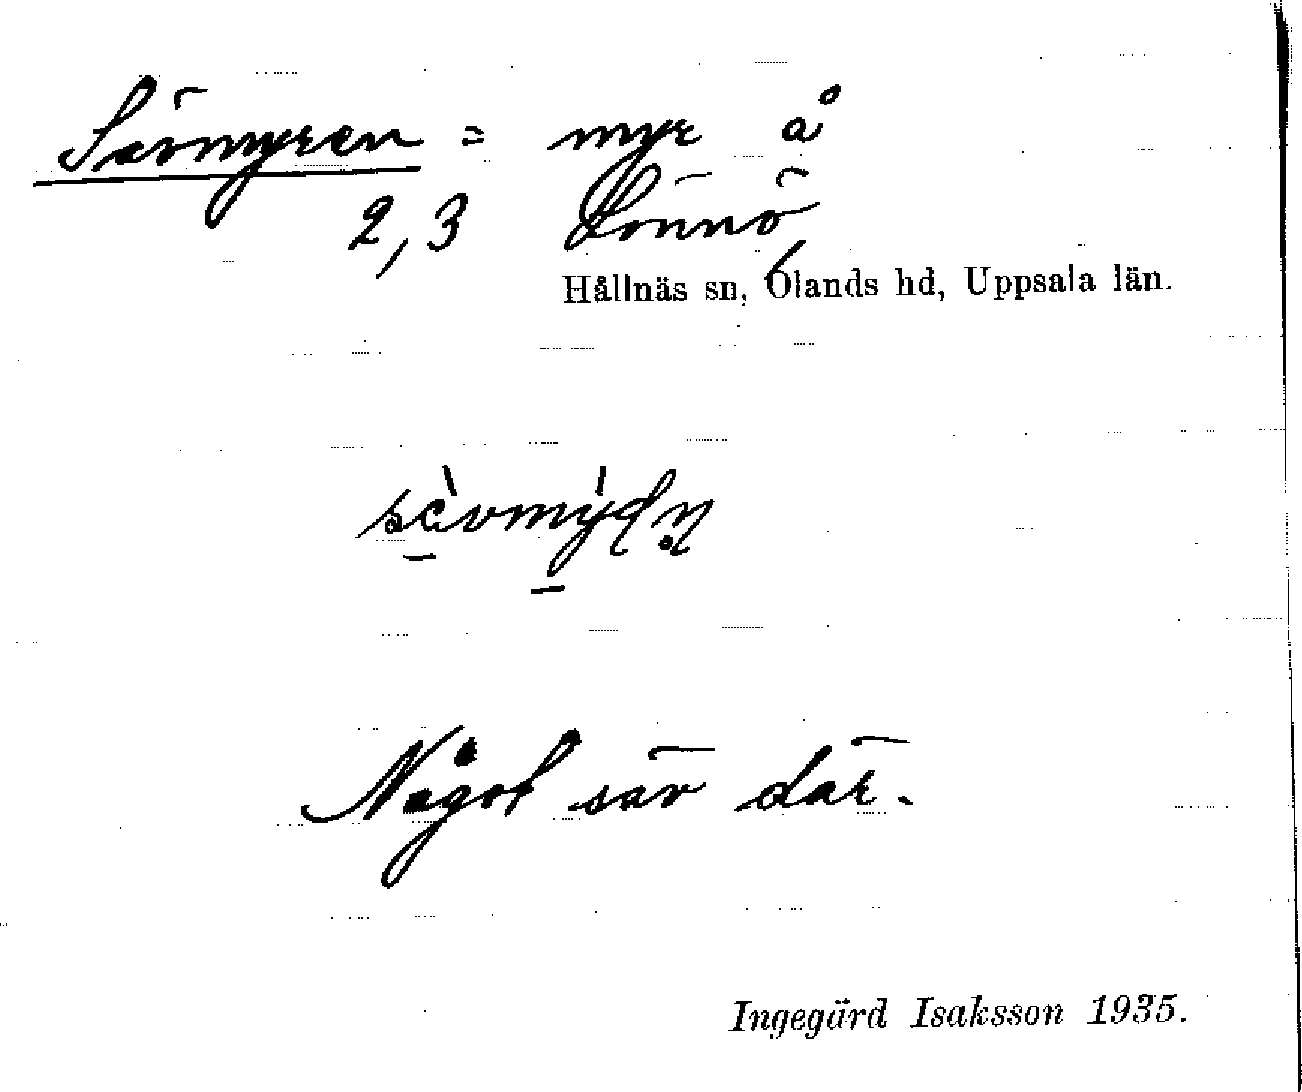 Sävmyren = myr å
2,3 Lönnö
Hållnäs sn, Olands hd, Uppsala län.
Något säv där.
Ingegärd Isaksson 1935.